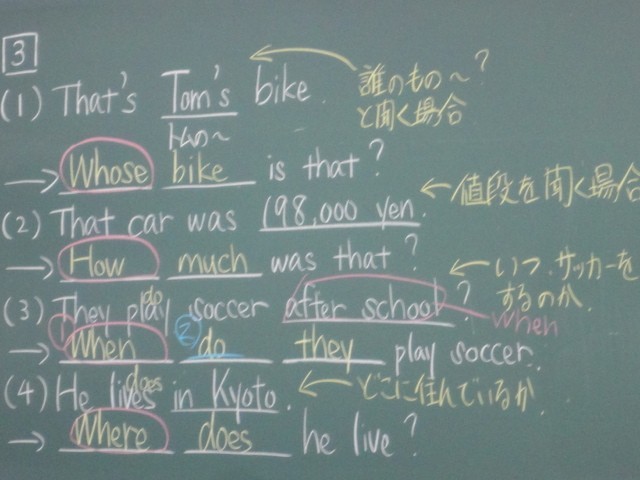 3
(1) That's Tom's bike. 誰のもの〜?
と聞く場合
トムの〜
→ Whose bike is that?
値段を聞く場合
(2) That car was 198,000 yen.
→ How much was that?
いつ、サッカーを
するのか.
do
(3) They play soccer after school?
when
① ②
→ When do they play soccer.
does
(4) He lives in Kyoto. どこに住んでいるか.
→ Where does he live?